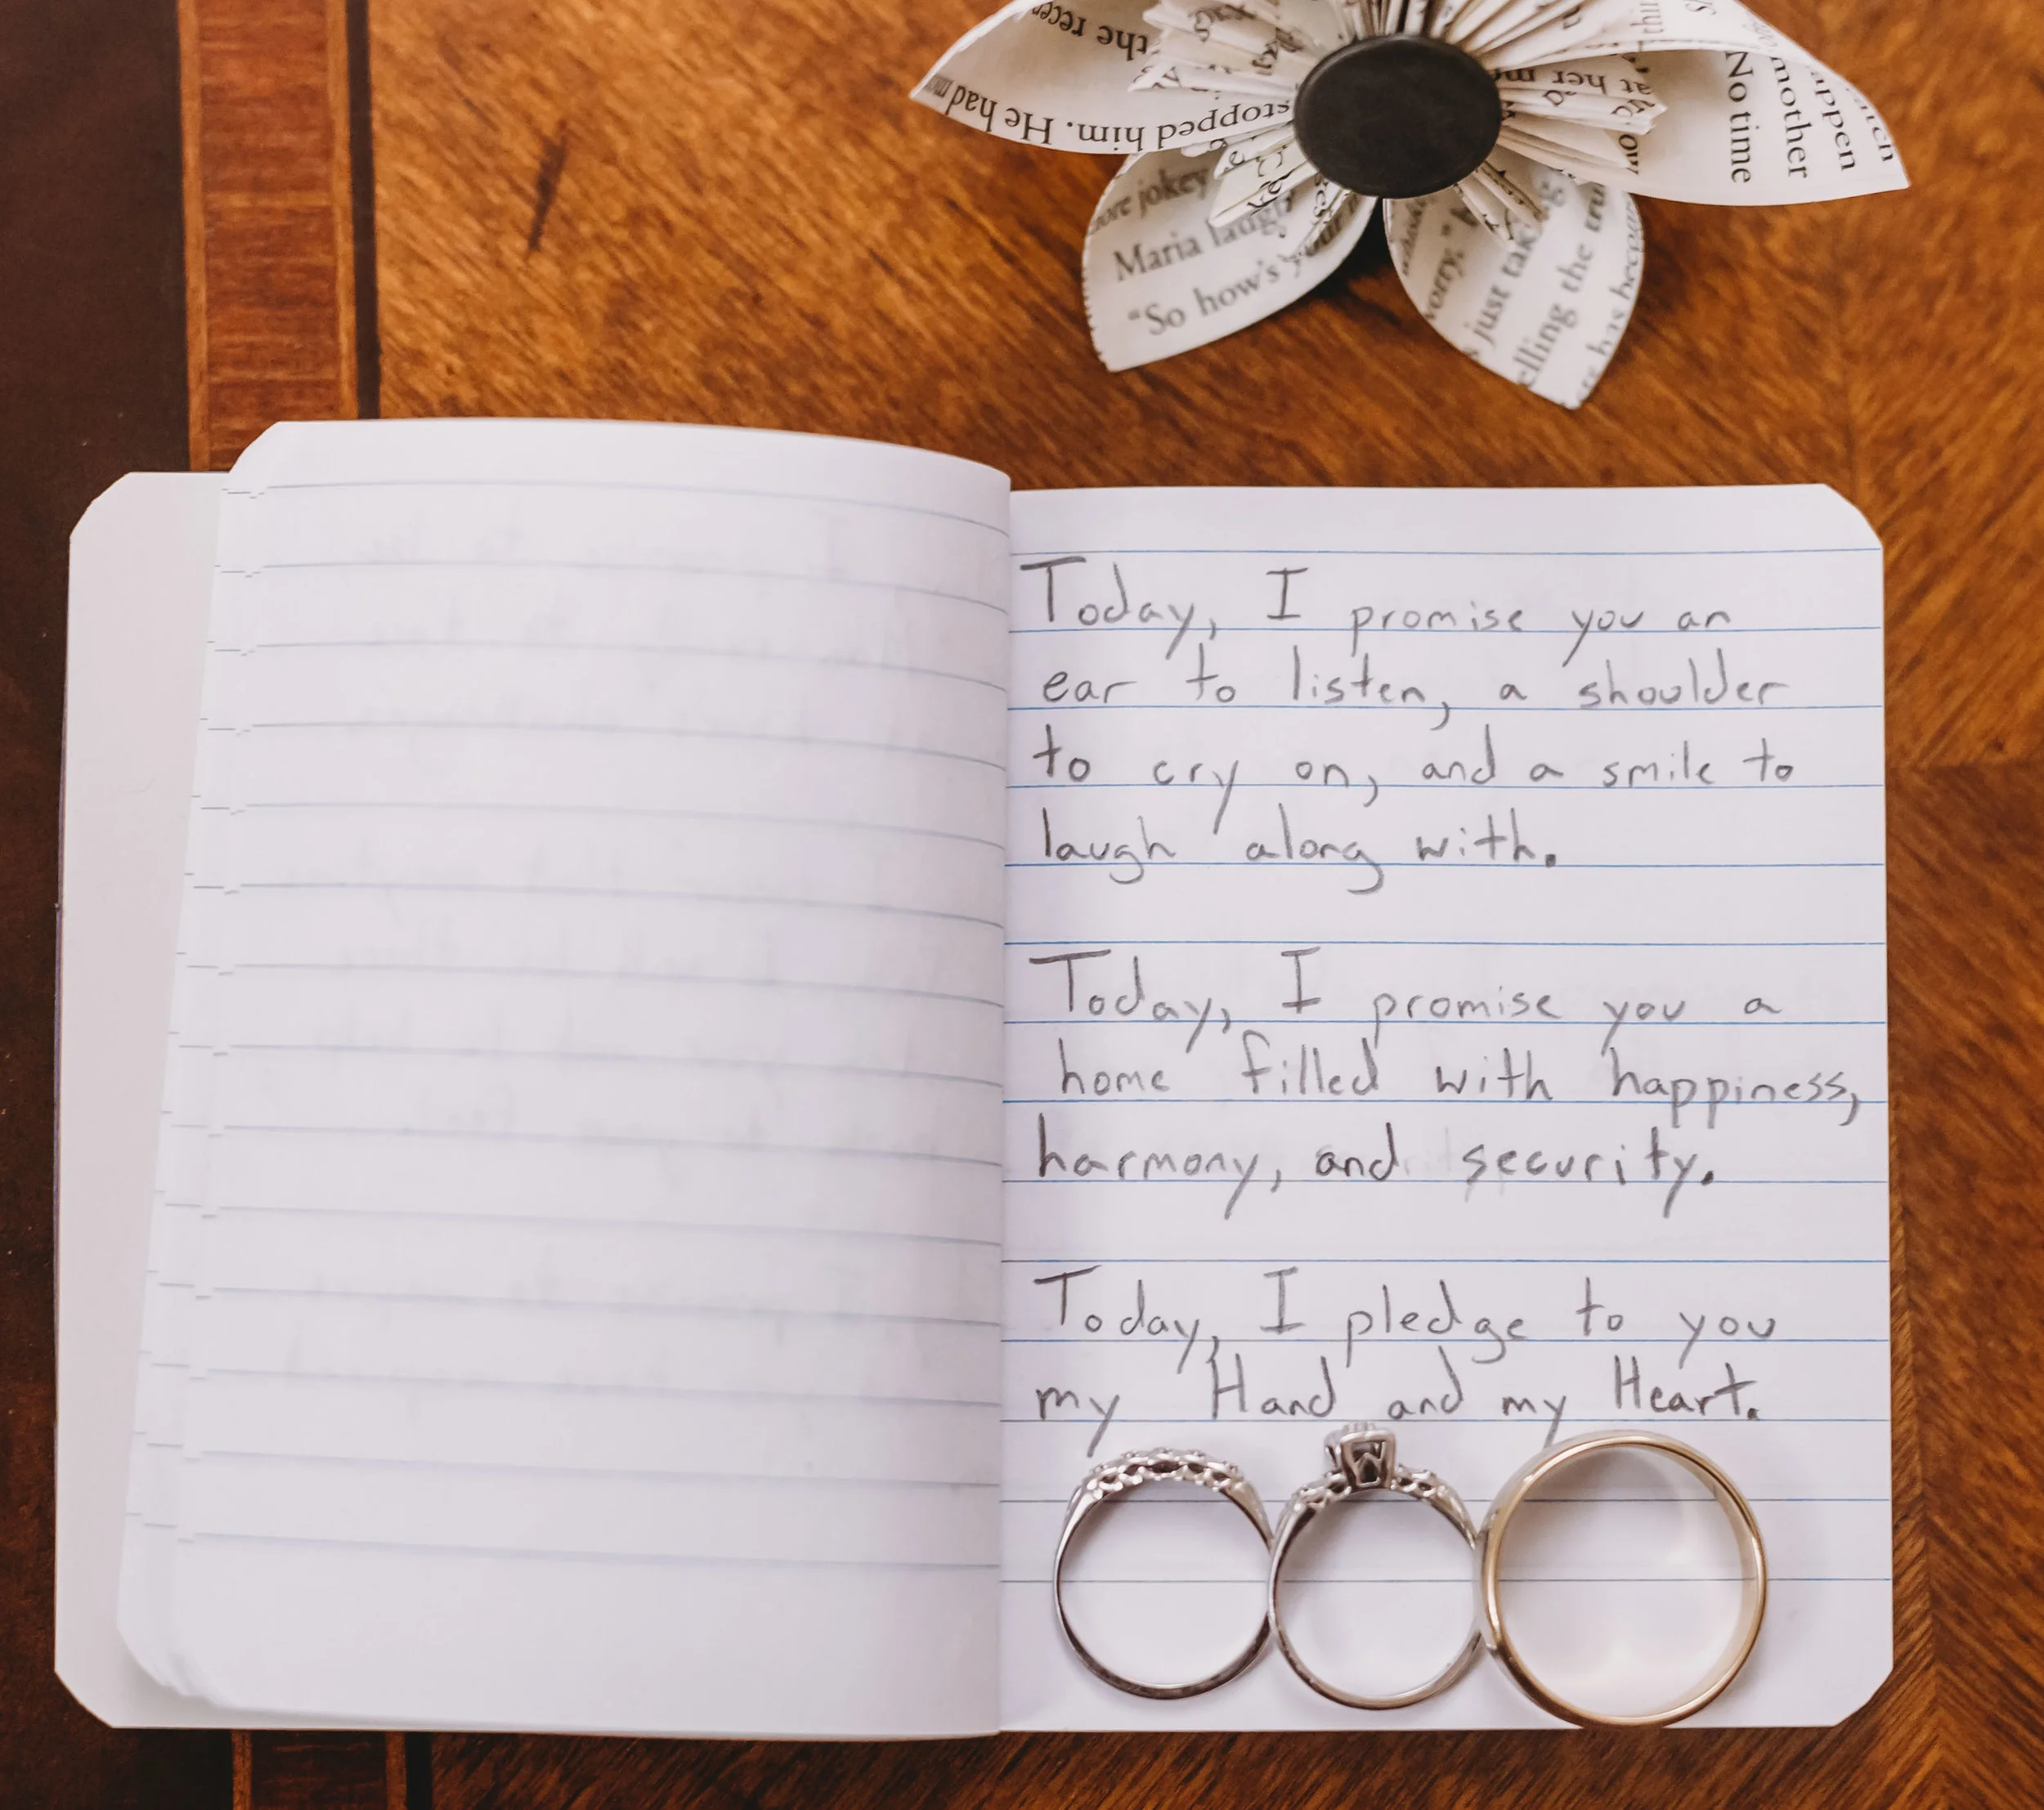 the rece
He had
stopped him.
her m
No time
mother
appen
ore jokey
Maria laugh
"So how's your
worry."
just tak
elling the tru
has becom
Today, I promise you an
ear to listen, a shoulder
to cry on, and a smile to
laugh along with.
Today, I promise you a
home filled with happiness,
harmony, and security.
Today, I pledge to you
my Hand and my Heart.